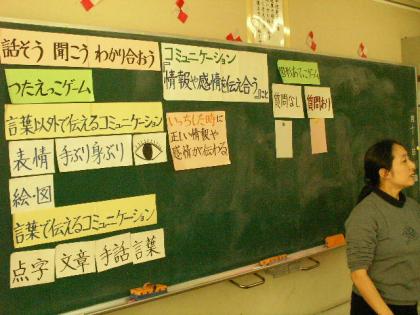 話そう 聞こう わかり合おう
つたえっこゲーム
言葉以外で伝えるコミュニケーション
表情 手ぶり身ぶり
絵・図
言葉で伝えるコミュニケーション
点字 文章 手話 言葉
コミュニケーション
『情報や感情を伝え合う』こと
いっちした時に
正しい情報や
感情が伝わる
図形あてこゲーム
質問なし 質問あり